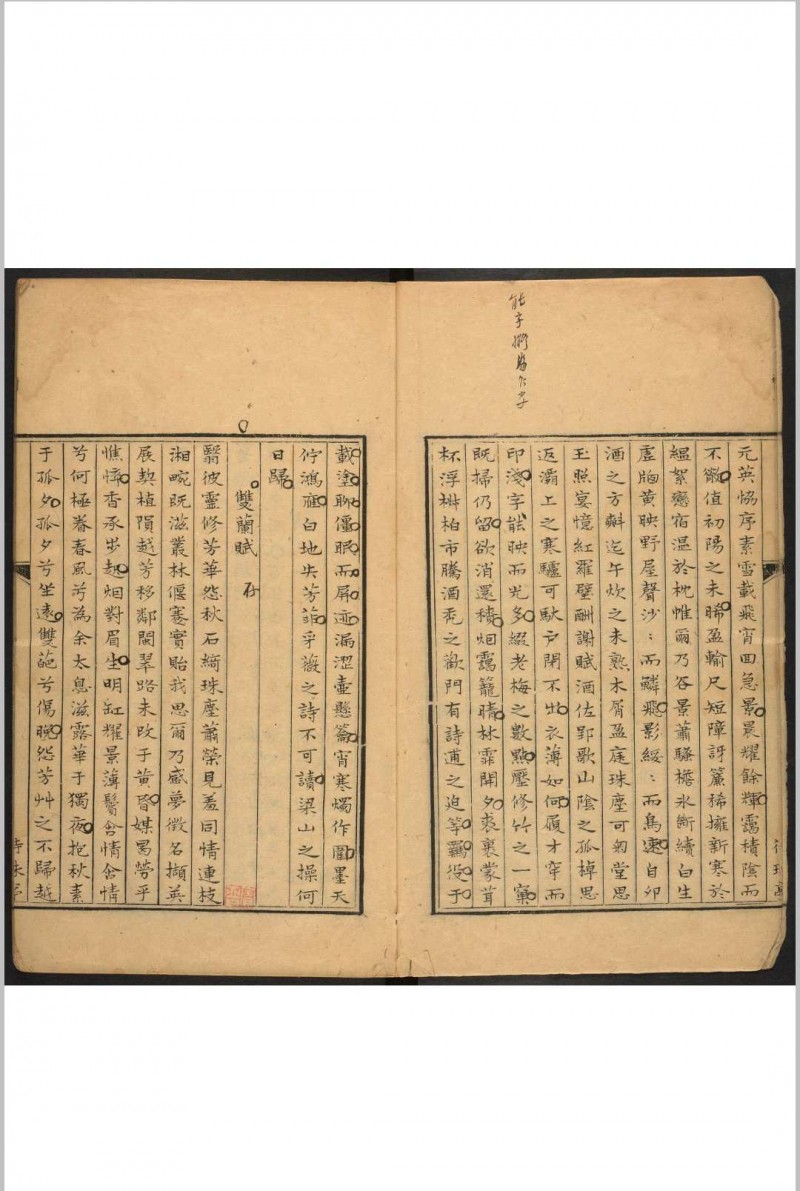 能字擬易以字
元英協序素雪載飛宵回急景晨耀餘輝靄積陰而
不徹值初陽之未晞盈輸尺短障訝簾稀擁新寒於
縕絮戀宿温於枕帷爾乃谷景蕭騷檐氷斷續白生
虛牕黄映野屋聲沙：而鱗飛影綏：而鳥速自卯
酒之方斟迄午炊之未熟木屑盈庭珠塵可匊堂思
玉照宴憶紅羅壁酬謝賦酒佐郢歌山陰之孤棹思
返灞上之寒驢可馱戸閉不出衣薄如何履才穿而
印淺字能映而光多綴老梅之數點壓修竹之一窠
既掃仍留欲消還積烟靄籠晴林霏開夕裘裏蒙茸
杯浮栟柏市騰酒禿之歡門有詩逋之迫等羈役于
載塗聊僵眠而屏迹漏澀壺懸籥宵寒燭作圍墨天
佇鴻應白地失芳菲乎薇之詩不可讀梁山之操何
日歸
雙蘭賦 存
翳彼靈修芳華怨秋石綺珠塵蕭榮見羞同情連枝
湘畹既滋叢林偃蹇實貽我思爾乃感夢徵名擷英
展契植隕越芳移鄰閣翠路未改于黄昏媒曷勞乎
憔悴香承步起烟對眉生明缸耀景薄鬢含情含情
兮何極眷春風兮為余太息滋露華于獨夜抱秋素
于孤夕孤夕兮坐遠雙葩兮傷晚怨芳艸之不歸越